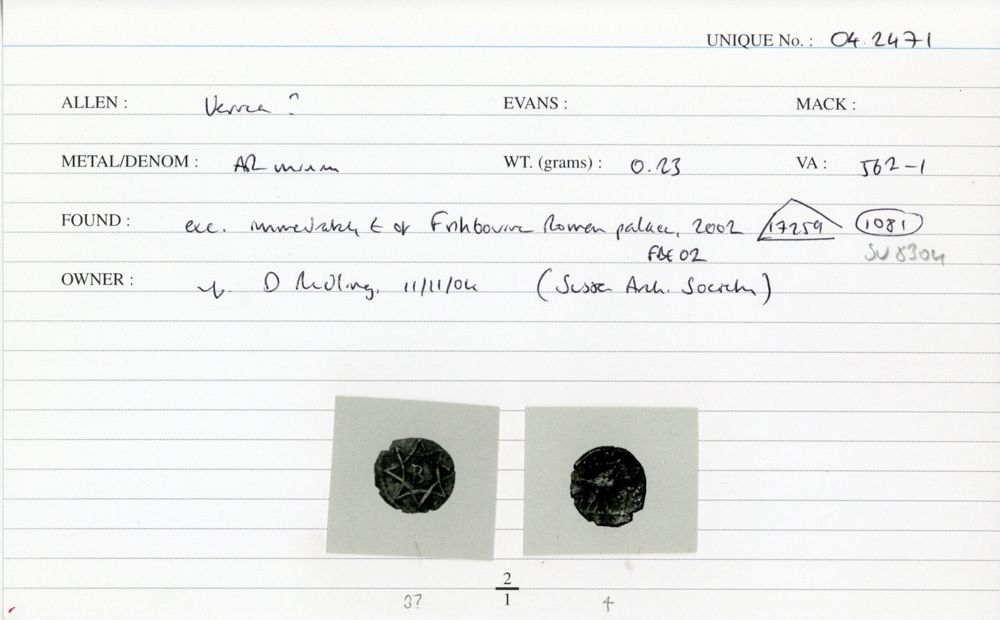 UNIQUE No. : 04.2471
ALLEN : Verica ? EVANS : MACK :
METAL/DENOM : AR minim WT. (grams) : 0.23 VA : 562-1
FOUND : exc. immediately E of Fishbourne Roman palace, 2002 17259 1081
FBE 02 SU 8304
OWNER : D Rudling, 11/11/04 (Sussex Arch. Society)
B
2
3? 1 4